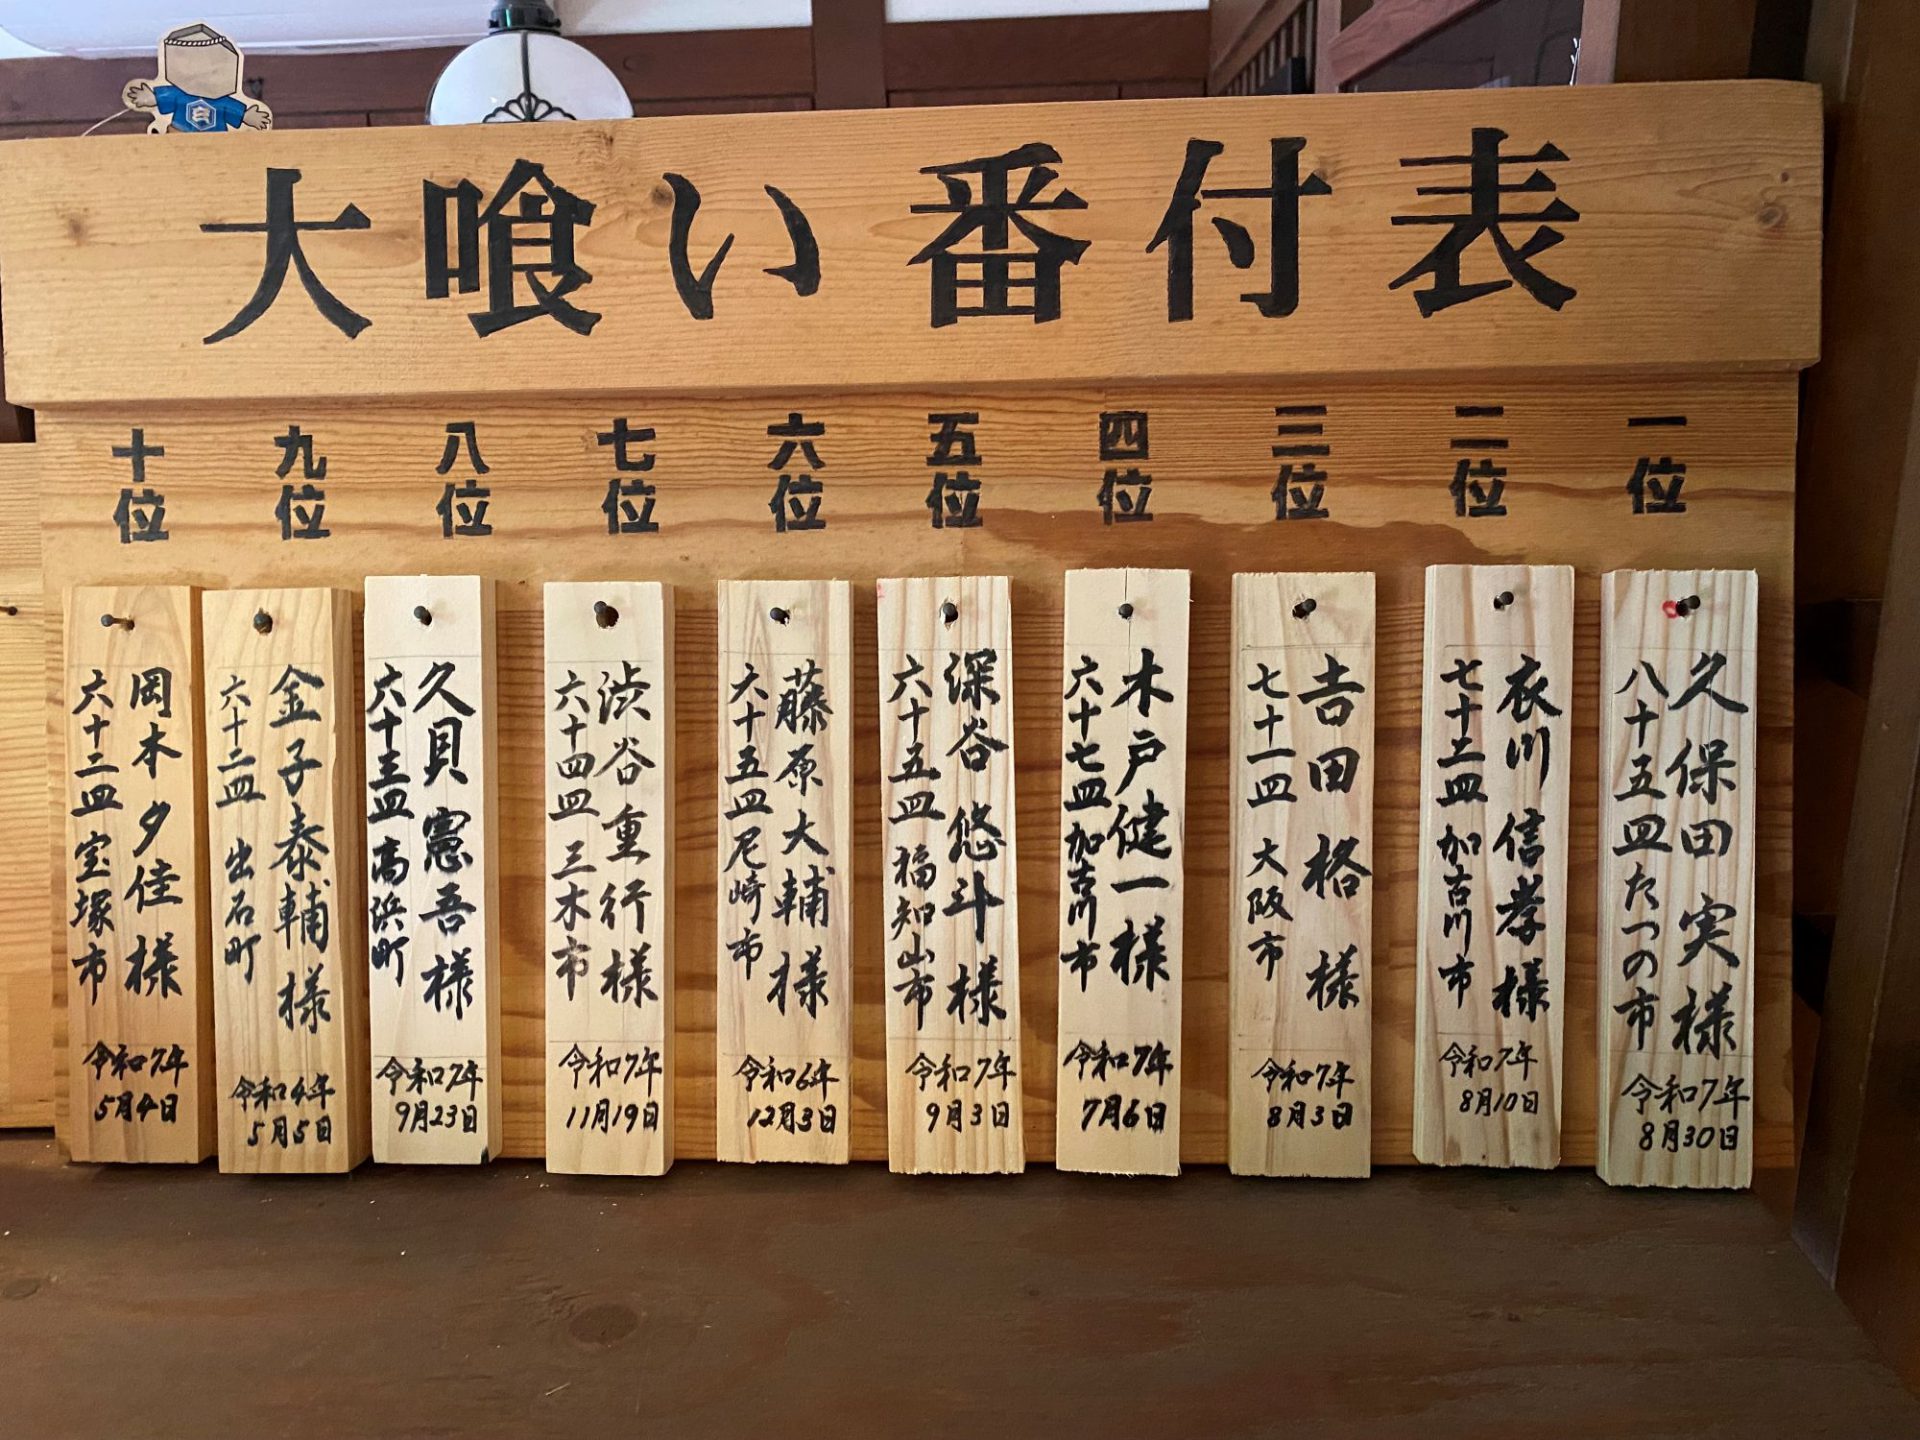 大喰い番付表
一位
久保田実様
八十五皿たつの市
令和7年
8月30日
二位
衣川信孝様
七十二皿加古川市
令和7年
8月10日
三位
吉田格様
七十一皿 大阪市
令和7年
8月3日
四位
木戸健一様
六十七皿加古川市
令和7年
7月6日
五位
深谷悠斗様
六十五皿福知山市
令和7年
9月3日
六位
藤原大輔様
六十五皿尼崎市
令和6年
12月3日
七位
渋谷重行様
六十四皿 三木市
令和7年
11月19日
八位
久貝憲吾様
六十三皿高浜町
令和7年
9月23日
九位
金子泰輔様
六十二皿 出石町
令和4年
5月5日
十位
岡本夕佳様
六十二皿宝塚市
令和7年
5月4日